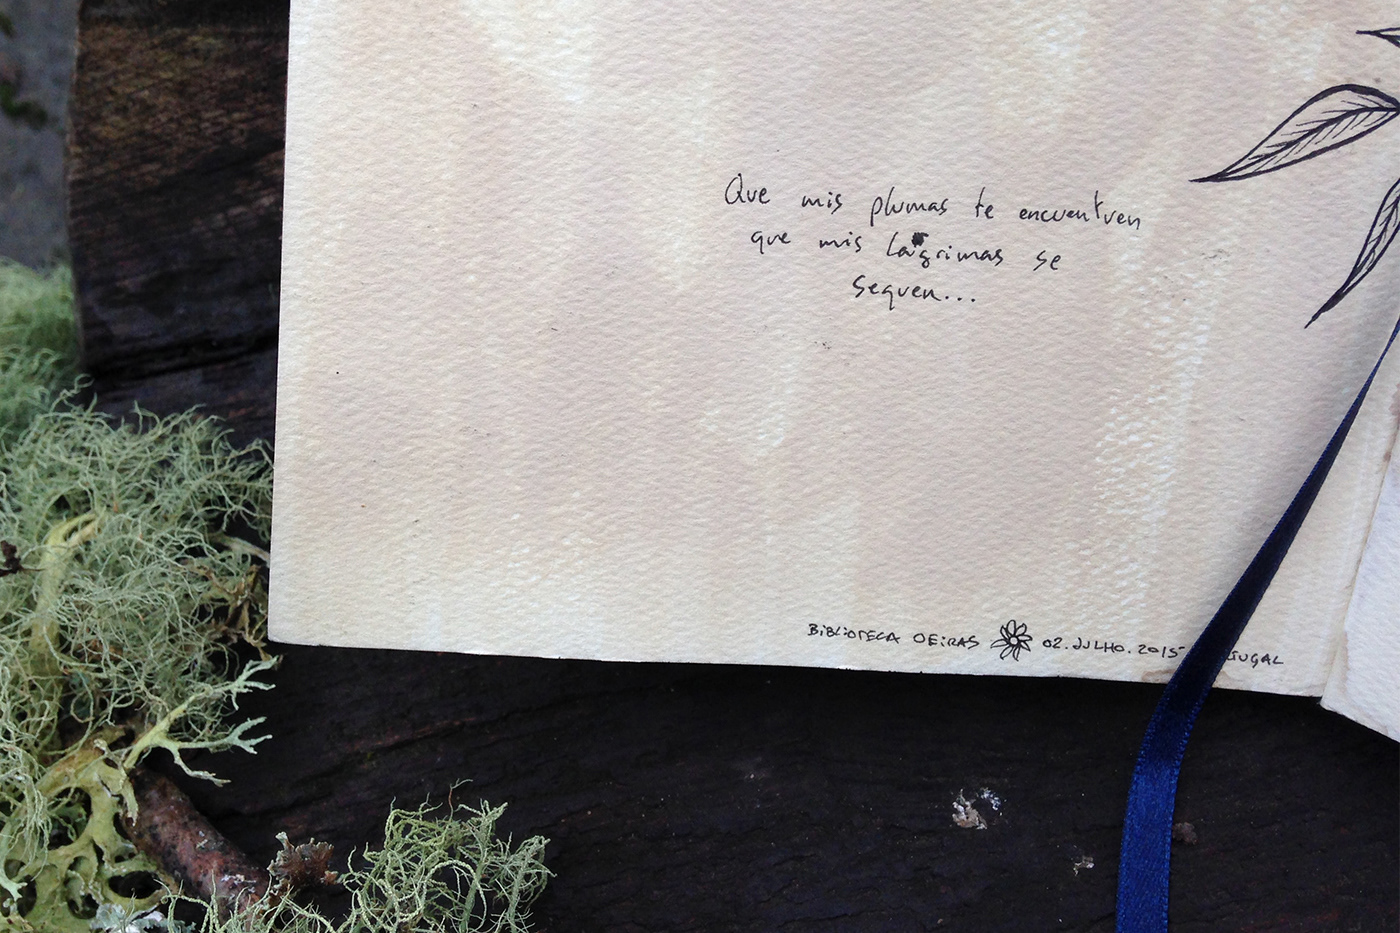 Que mis plumas te encuentren
que mis lagrimas se
sequen...
BIBLIOTECA OEIRAS 02.JULHO.2015